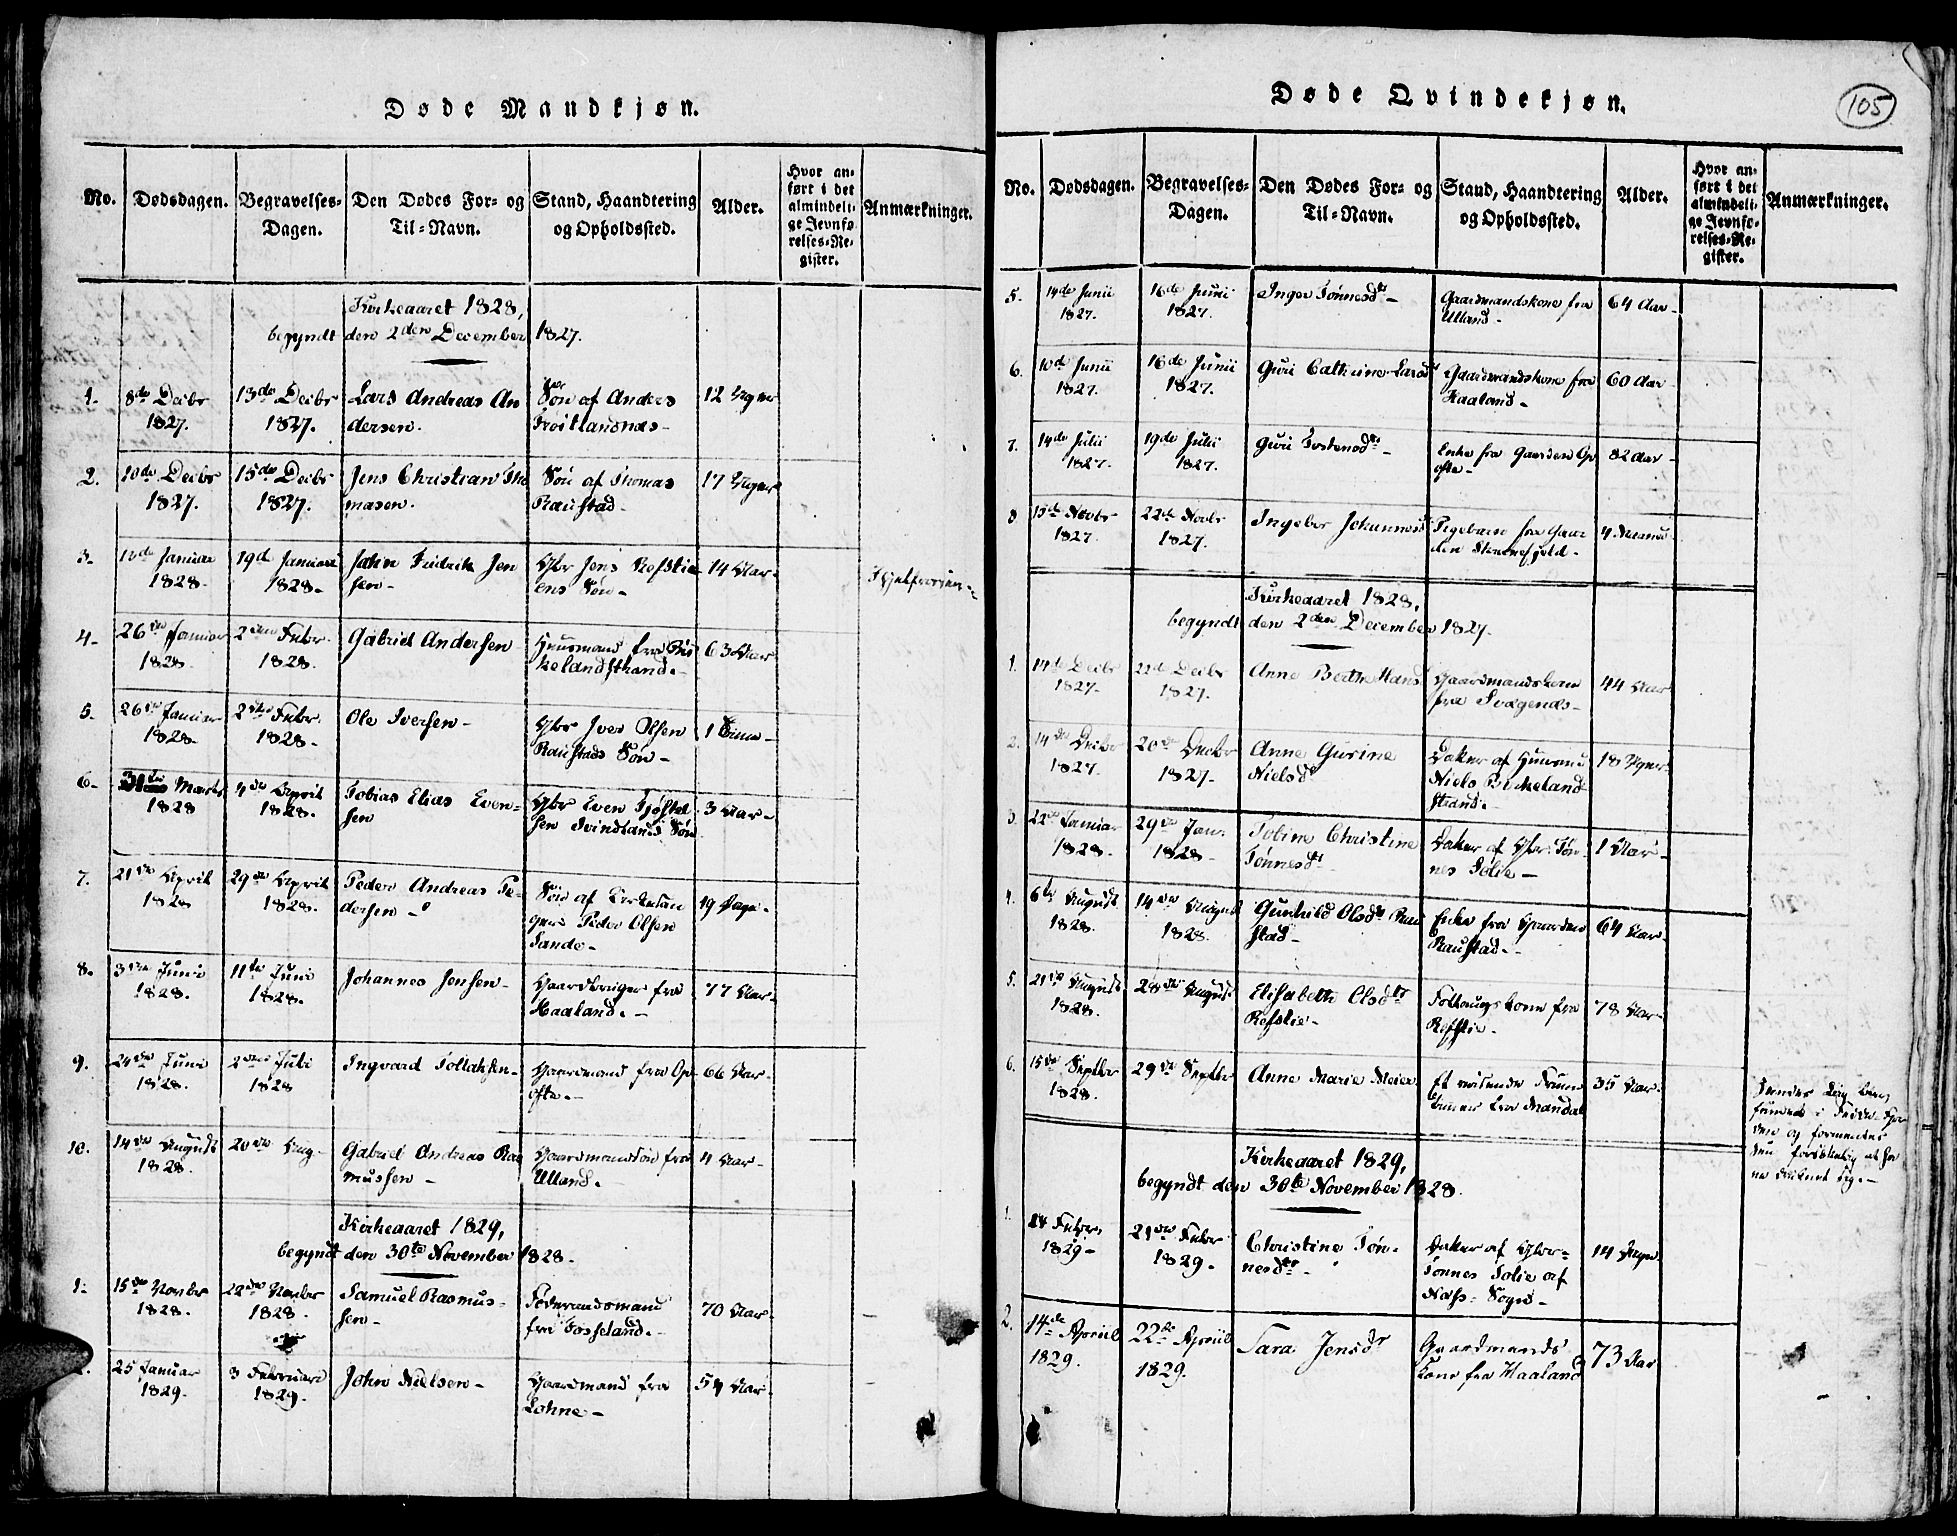 Døde Mandkjøn.
No. Dødsdagen. Begravelses-Dagen. Den Dødes For- og Til-Navn. Stand, Haandtering og Opholdssted. Alder. Hvor anført i det almindelige Jevnførelses-Register. Anmærkninger.
Kirkeaaret 1828,
begyndt den 2den December 1827.
1. 8de Decbr 13de Decbr Lars Andreas An Søn af Anders 12 Uger
1827. 1827. dersen. Frøitlandsnds
2. 10de Decbr 15de Decbr Jens Christian Tho Søn af Thomas 17 Uger
1827. 1827. masen. Raustad.
3. Januar 19d Januar Jahn Fridrik Jen Gbr Jens Refstie 14 Aar.
1828. 1828. sen ens Søn
4. 26de Januar 2den Febr. Gabriel Andersen Huusmand fra 63 Aar
1828. 1828. kelandstrand.
5. 26de Januar 2den Febr. Ole Iversen Gbr Iver Olsen 1
1828. 1828. Raustads Søn
6. Marts 4de April Tobias Elias Even- Gbr Even 3 Aar
1828 1828. sen sen Svindland Søn
7. 21de April 29de April Peder Andreas Pe- Søn af Kirkesan 19 Dage
1828 1828. dersen gers Peder Olsen
Sande
8. 3die Juni 11te Juni Johannes Jensen Gaardbruger fra 77 Aar
1828. 1828. Haaland.
9. 24de Juni 2den Juli Ingvard Tollaksen Gaardmand fra Op 66 Aar
1828. 1828 ofte.
10. 14de August 20de Aug. Gabriel Andreas Ras Gaardmandsøn fra 4 Aar
1828. mussen Ulland.
Kirkeaaret 1829,
begyndt den 30te November 1828.
1. 15de Novbr 22de Novbr Samuel Rasmus- Føderaadsmand 70 Aar
1828. 1828. sen fra Fosseland.
25 Januar 3 Februari John Nielsen Gaardmand fra 54 Aar
1829. 1829. Lohne
Døde Qvindekjøn.
105
No. Dødsdagen. Begravelses-Dagen. Den Dødes For- og Til-Navn. Stand, Haandtering og Opholdssted. Alder. Hvor anført i det almindelige Jevnførelses-Register. Anmærkninger.
5. 14de Junii 16de Junii Inger Tønnesdtr Gaardmandskone fra 64 Aar
1827. 1827. Ulland
6. 10de Junii 16de Junii Guri Cathrine Larsd Gaardmandskone fra 60 Aar
1827. 1827. Haaland
7. 14de Julii 19de Julii Guri Enke fra Gaarden Op 82 Aar
1827. 1827. ofte
8 15de Novbr 22de Novbr Ingebor Johannesd Pigebarn fra Gaar 4
1827. 1827. den
Kirkeaaret 1828,
begyndt den 2den December 1827.
1. 14de Decbr 22de Decbr Anne Berthe Hansd Gaardmandskone 44 Aar
1827 1827. fra
2. 14de Decbr 20de Decbr Anne Gurine Datter af Huusmd 18 Uger
1827. 1827 Nielsd Niels Birkeland
strand.
3. 22de Januar 29de Jan. Tobine Christine Datter af Gbr. Tøn- 1 Aar
1828. 1828 Tønnesdtr nes Solie
4. 6te August 14de August Gunhild Olsdtr Rau Enke fra Gaarden 64 Aar
1828. 1828. stad Raustad.
5. 21de August 28de August Elisabeth Olsdtr kone fra 78 Aar
1828. Refstie Refstie.
6. 15de Septbr 29de Septbr Anne Marie Meier Et 35 Aar
1828. fra Mandal
Kirkeaaret 1829,
begyndt den 30te November 1828.
1. Febr. 21de Febr Christine Tøn- Datter af Gbr 14 Dage
1829 1829. nesdtr Tønnes Solie af
Sogn
2. 14de Apriil 22de Apriil Sara Jensdr Gaardmands 73 Aar
1829. 1829. Kone fra Haaland